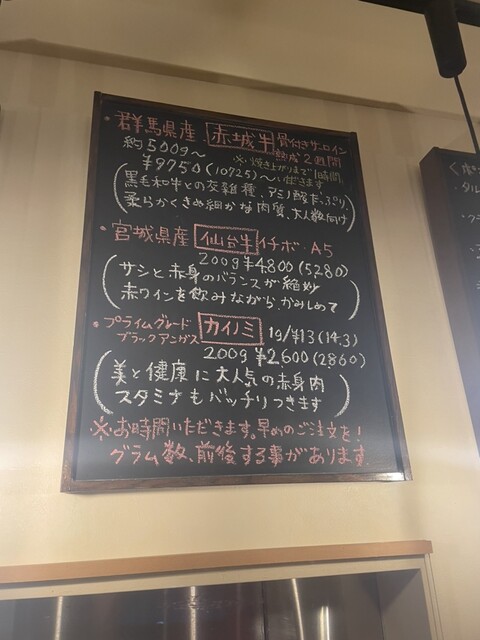 ・群馬県産 赤城牛 骨付きサーロイン
約500g〜 熟成2週間
※焼き上がりまで1時間
¥9750(10725)〜いただきます
(黒毛和牛との交雑種、アミノ酸たっぷり
柔らかくきめ細かな肉質、大人数向け)
・宮城県産 仙台牛 イチボ・A5
200g ¥4,800(5280)
(サシと赤身のバランスが絶妙
赤ワインを飲みながら、かみしめて)
・プライムグレード
ブラックアンガス カイノミ 1g/¥13(14.3)
200g ¥2,600(2,860)
(美と健康に大人気の赤身肉
スタミナもバッチリつきます)
※お時間いただきます。早めのご注文を!
グラム数、前後する事があります。